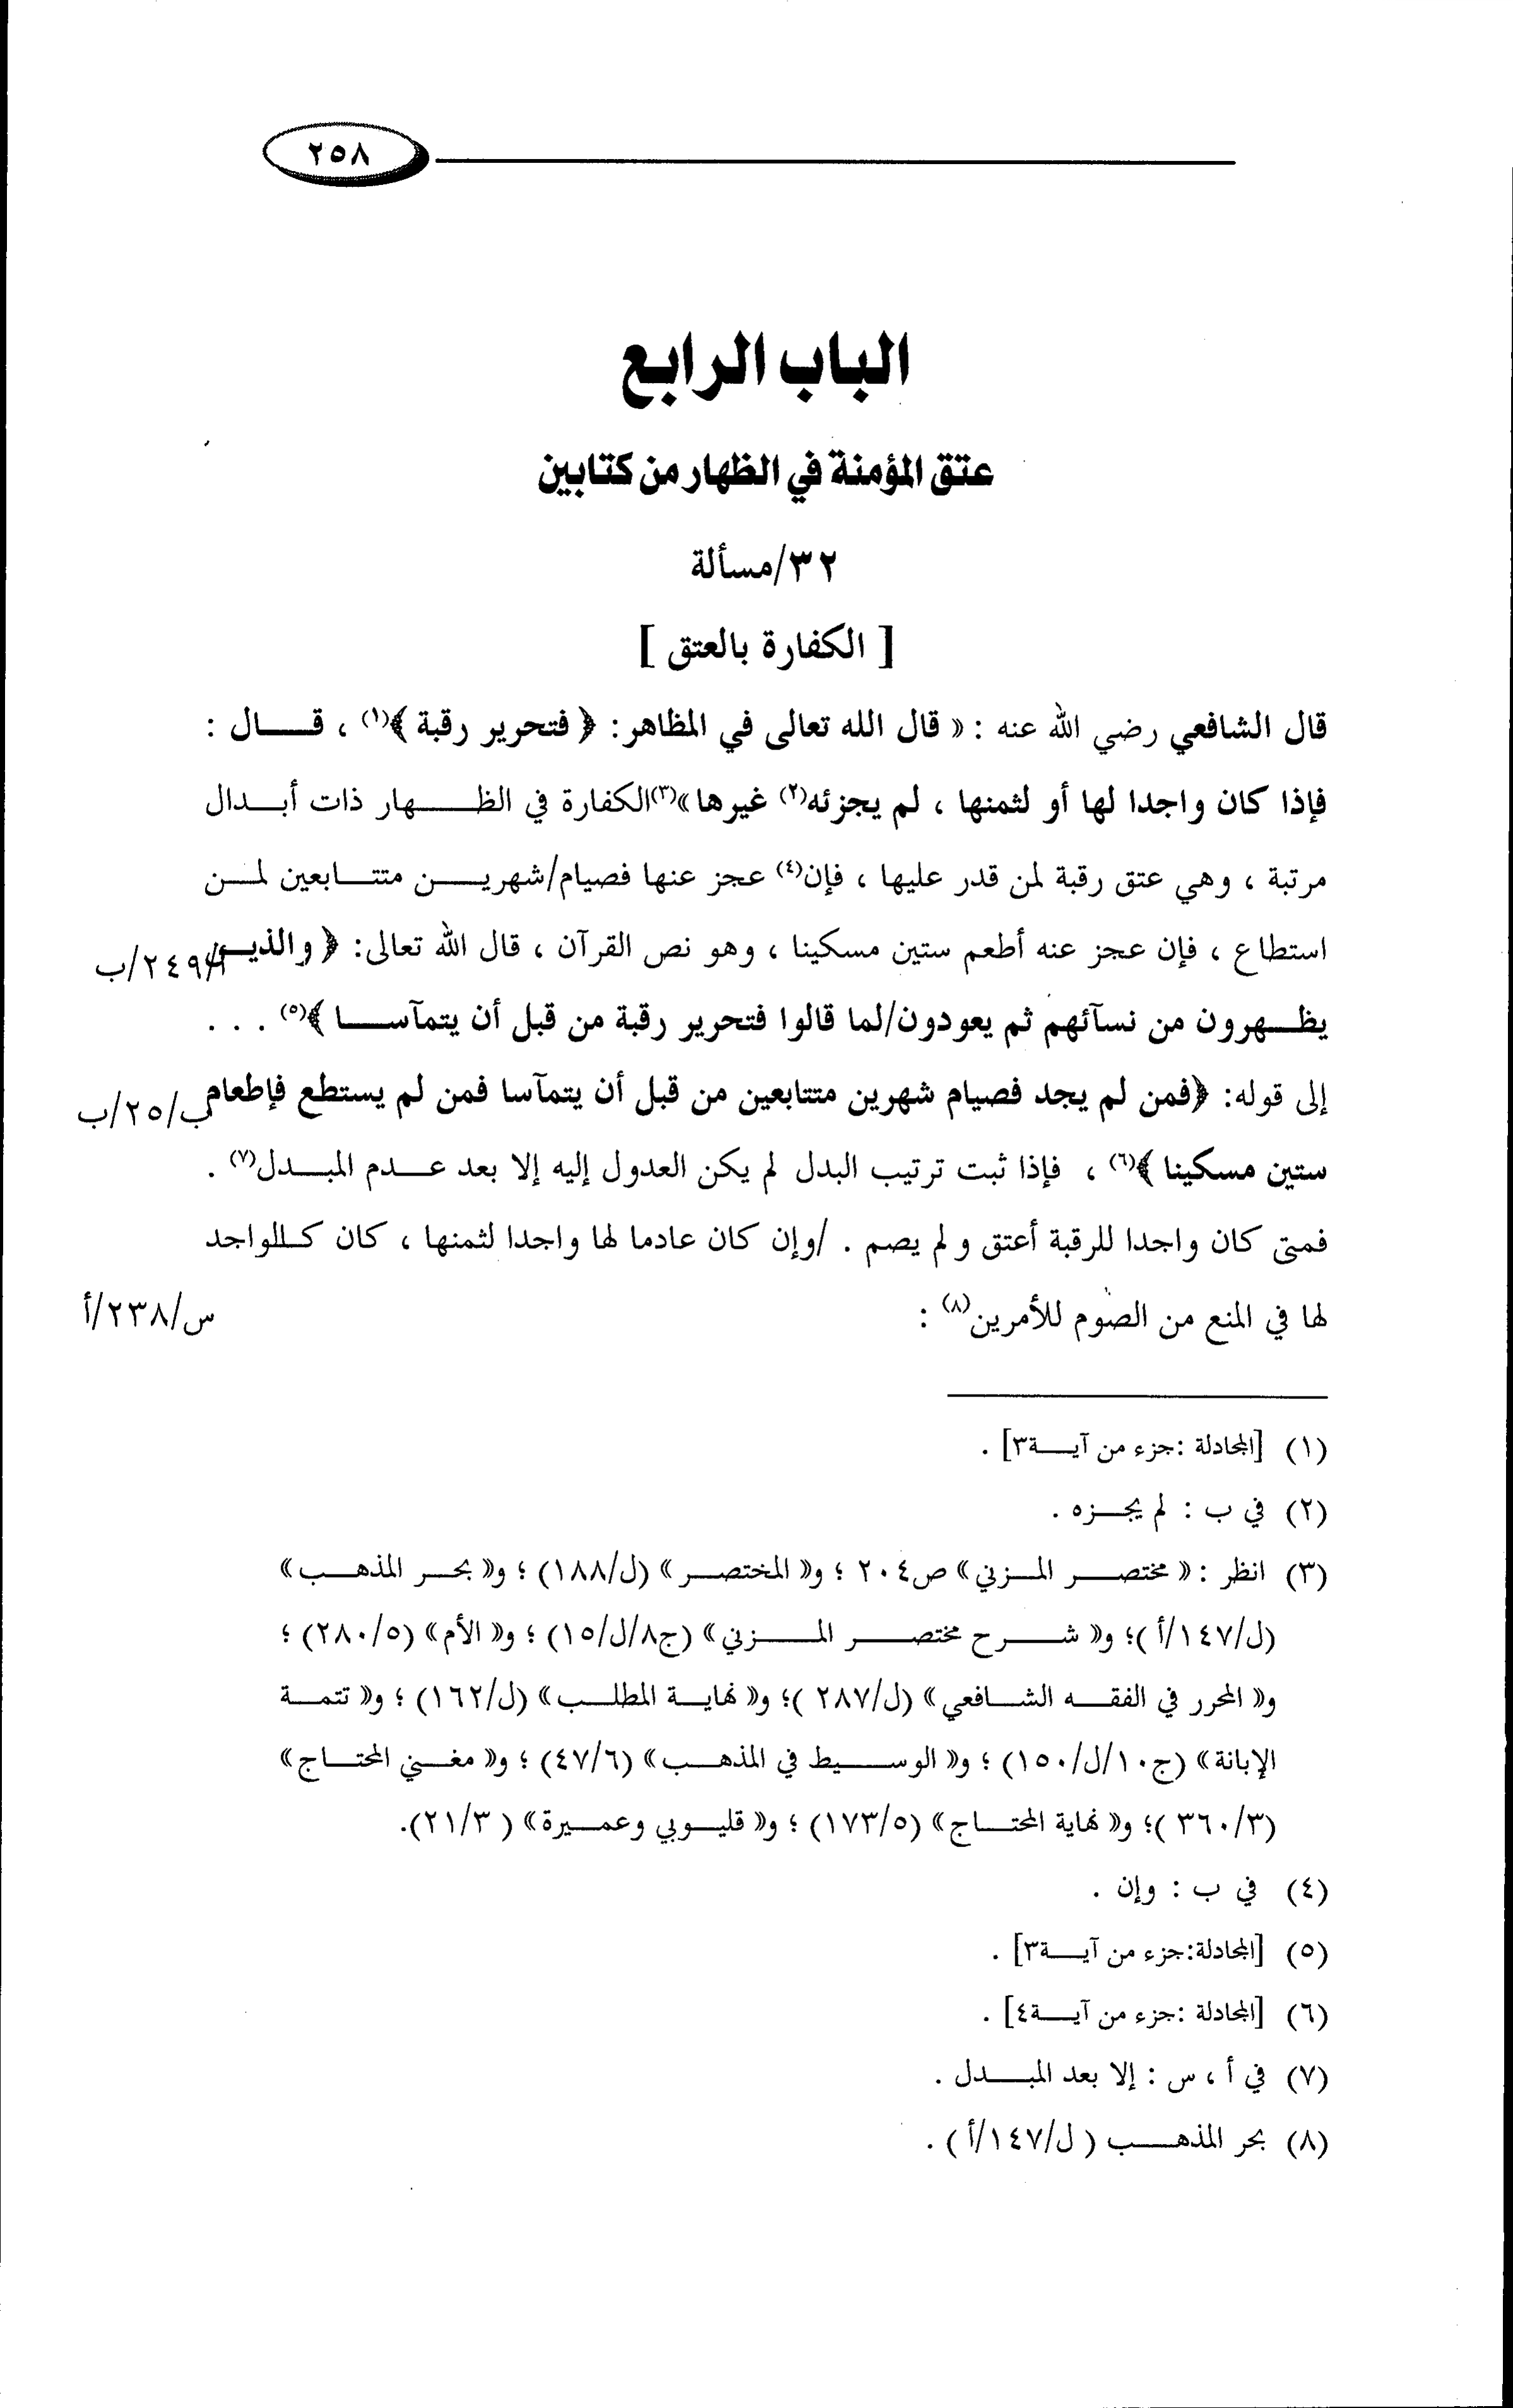 ٢٥٨
الباب الرابع
عتق المؤمنة في الظهار من كتابين
٣٢/مسألة
[ الكفارة بالعتق ]
قال الشافعي رضي الله عنه : « قال الله تعالى في المظاهر: ﴿ فتحرير رقبة ﴾(١) ، قـــال :
فإذا كان واجدا لها أو لثمنها ، لم يجزئه(٢) غيرها»(٣)الكفارة في الظـــهار ذات أبـــدال
مرتبة ، وهي عتق رقبة لمن قدر عليها ، فإن(٤) عجز عنها فصيام/شهريـــن متتـــابعين لمـــن
استطاع ، فإن عجز عنه أطعم ستين مسكينا ، وهو نص القرآن ، قال الله تعالى: ﴿ والذيـــن
أ/٢٤٩/ب
يظـــهرون من نسآئهم ثم يعودون/لما قالوا فتحرير رقبة من قبل أن يتمآســـا ﴾(٥) . . .
إلى قوله: ﴿فمن لم يجد فصيام شهرين متتابعين من قبل أن يتمآسا فمن لم يستطع فإطعام
ب/٢٥/ب
ستين مسكينا ﴾(٦) ، فإذا ثبت ترتيب البدل لم يكن العدول إليه إلا بعد عـــدم المبـــدل(٧) .
فمتى كان واجدا للرقبة أعتق و لم يصم . /وإن كان عادما لها واجدا لثمنها ، كان كـالواجد
لها في المنع من الصوم للأمرين(٨) :
س/٢٣٨/أ
(١) [المجادلة :جزء من آيـــة٣] .
(٢) في ب : لم يجـــزه .
(٣) انظر : « مختصـــر المـــزني» ص٢٠٤ ؛ و« المختصـــر» (ل/١٨٨) ؛ و« بحـــر المذهـــب»
(ل/١٤٧/أ )؛ و« شـــرح مختصـــر المـــزني» (ج٨/ل/١٥) ؛ و« الأم» (٢٨٠/٥) ؛
و« المحرر في الفقـــه الشـــافعي» (ل/٢٨٧ )؛ و« نهايـــة المطلـــب» (ل/١٦٢) ؛ و« تتمـــة
الإبانة» (ج١٠/ل/١٥٠) ؛ و« الوســـيط في المذهـــب» (٤٧/٦) ؛ و« مغـــني المحتـــاج»
(٣٦٠/٣ )؛ و« نهاية المحتـــاج» (١٧٣/٥) ؛ و« قليـــوبي وعمـــيرة» ( ٢١/٣).
(٤) في ب : وإن .
(٥) [المجادلة:جزء من آيـــة٣] .
(٦) [المجادلة :جزء من آيـــة٤] .
(٧) في أ ، س : إلا بعد المبـــدل .
(٨) بحر المذهـــب ( ل/١٤٧/أ ) .